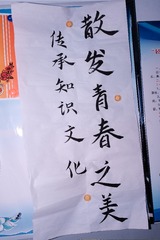 散发青春之美
传承知识文化